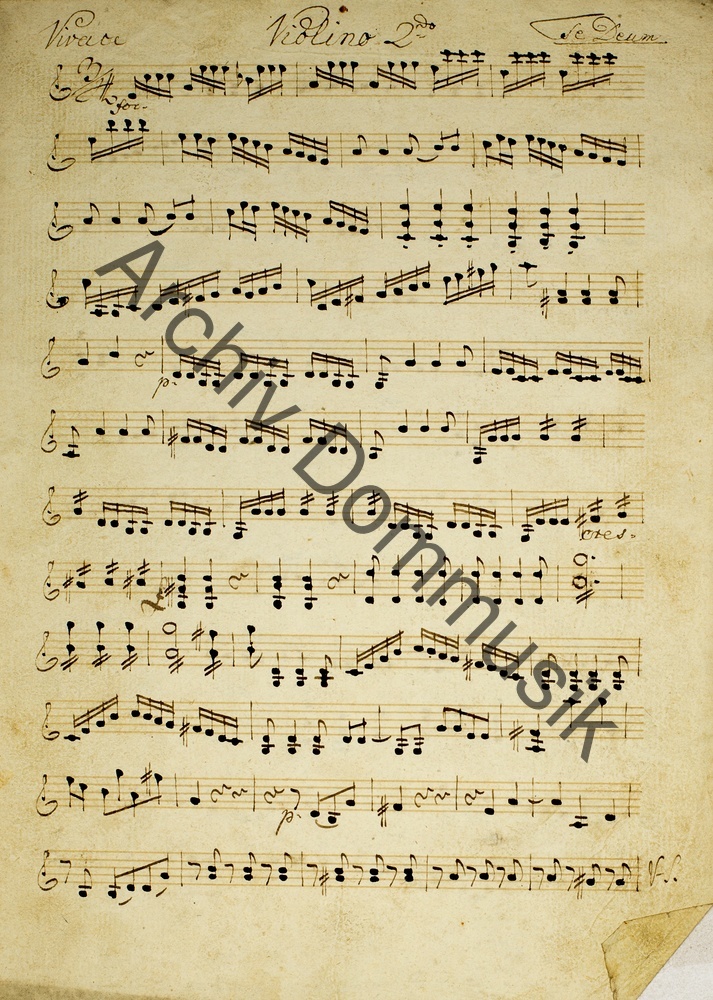 Vivace Violino 2do Te Deum
3/4
for.
p.
cres.
for.
p.
V.S.
Archiv Dommusik